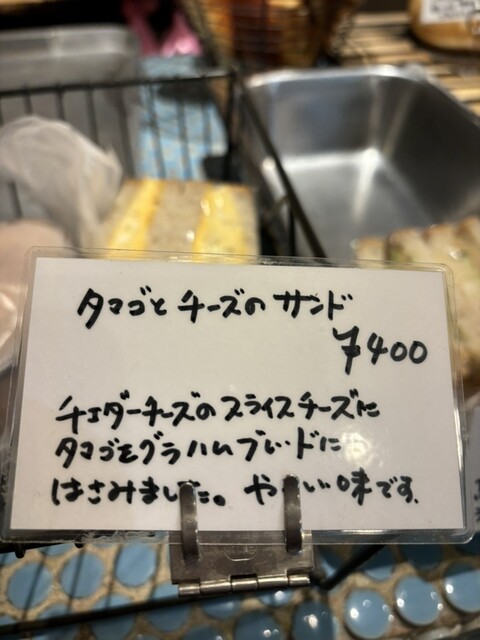 タマゴと チーズの サンド
¥400
チェダーチーズのスライスチーズに
タマゴをグラハムブレッドに
はさみました。やさしい味です。